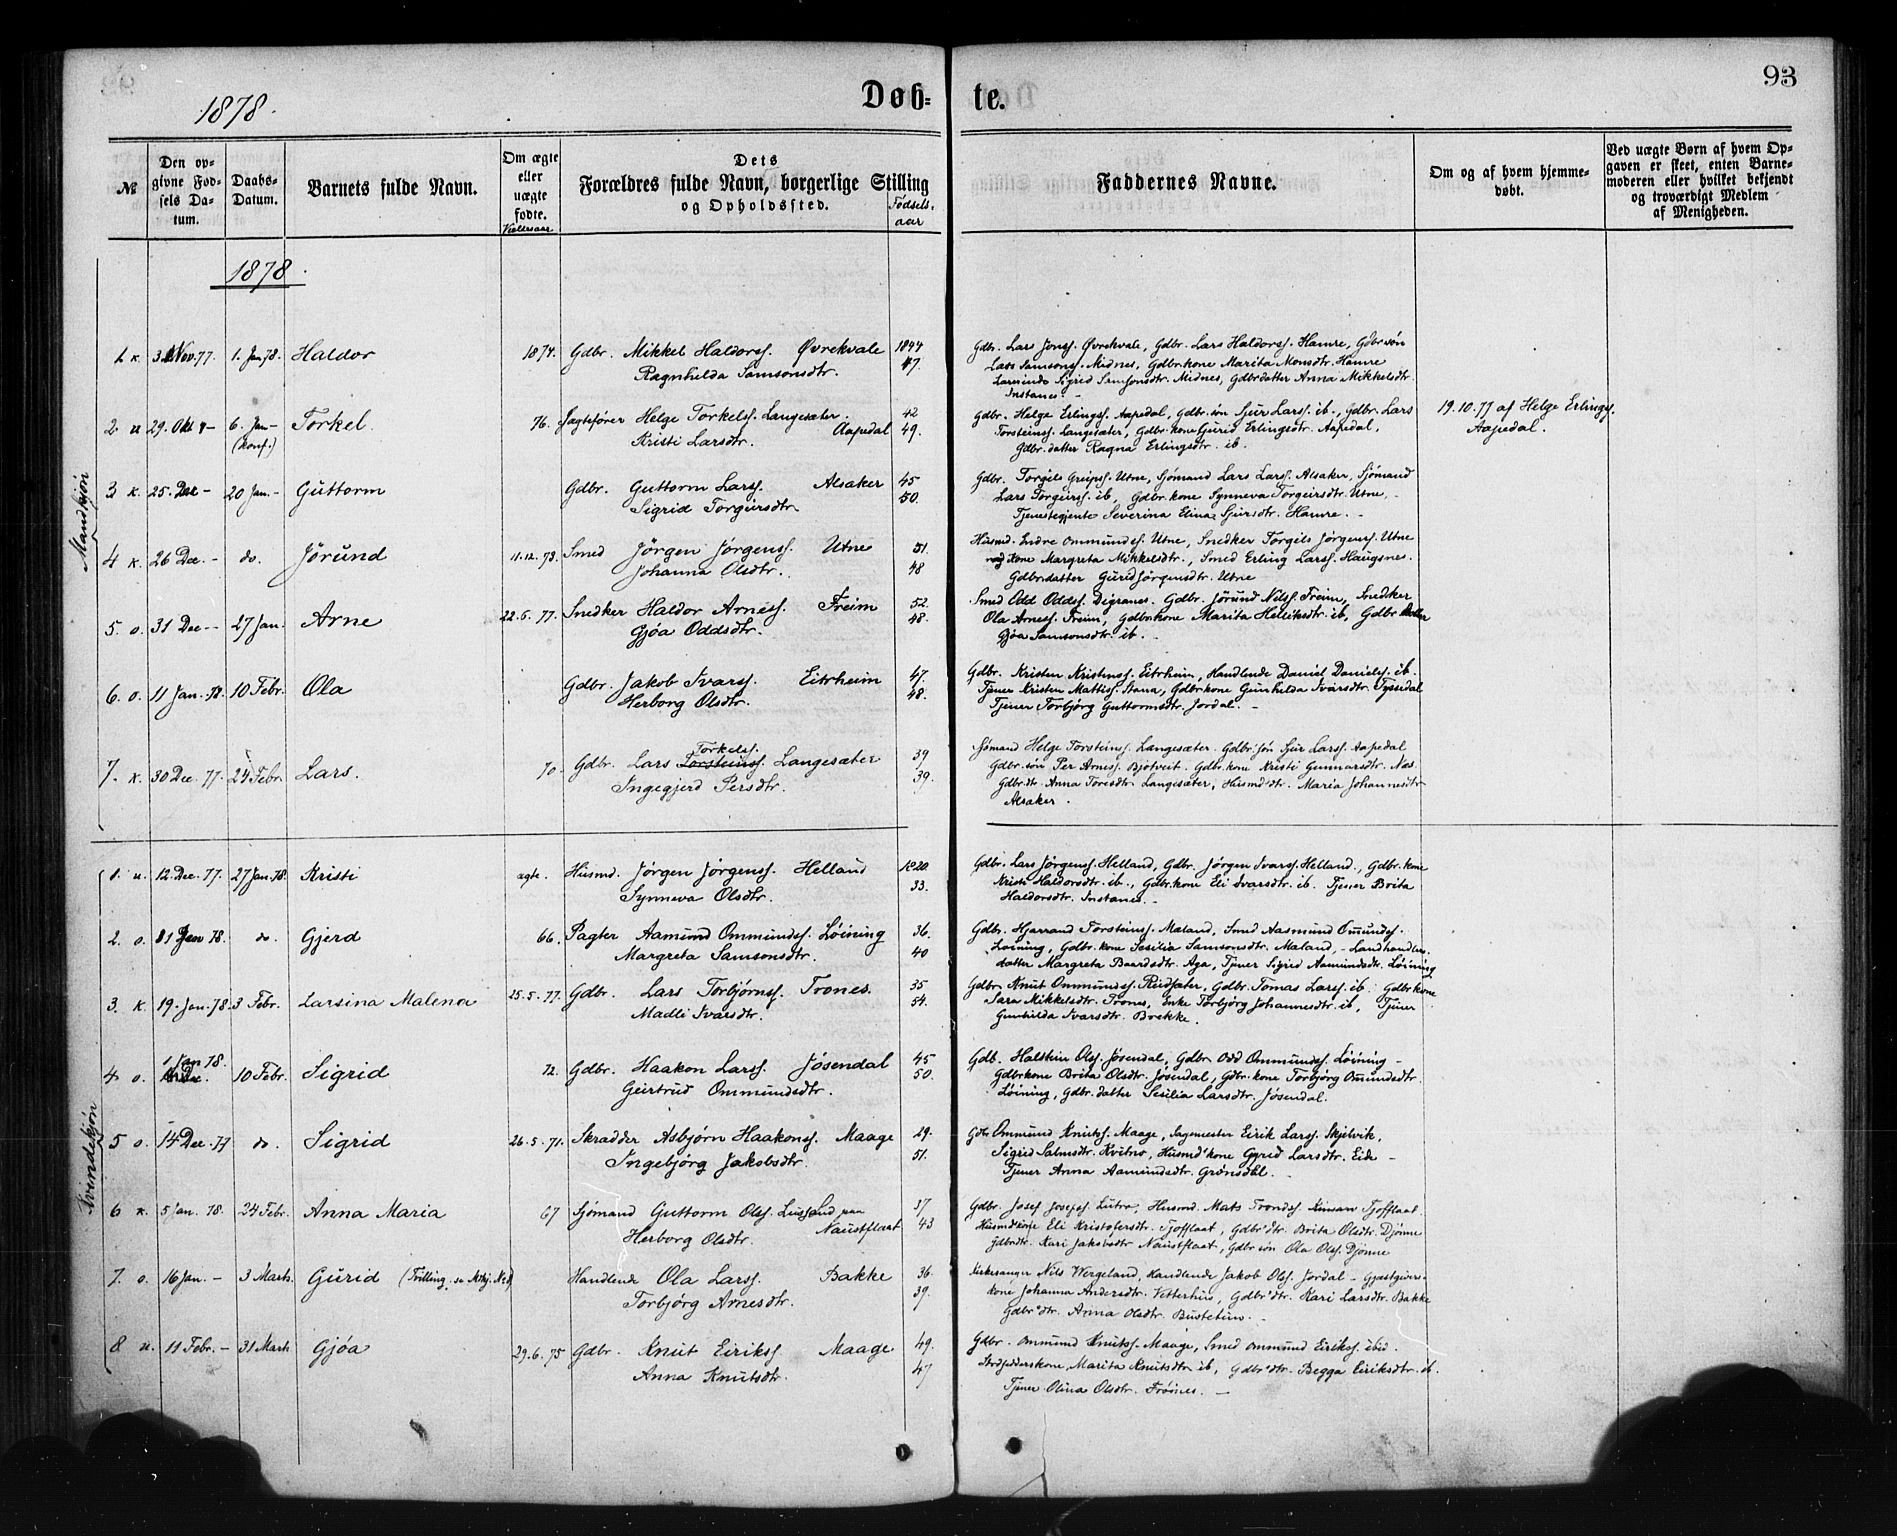 1878.
Døb= te.
93
№
Den op-
givne Fød-
sels Da-
tum.
Daabs-
Datum.
Barnets fulde Navn.
Om ægte
eller
uægte
fødte.
Vielsesaar
Dets
Forældres fulde Navn, borgerlige Stilling
og Opholdssted.
Fødsels-
aar
Faddernes Navne.
Om og af hvem hjemme-
døbt.
Ved uægte Børn af hvem Op-
gaven er skeet, enten Barne-
moderen eller hvilket bekjendt
og troværdigt Medlem
af Menigheden.
1878.
Mandkjøn
1. k. Nov. 77. 1. Jan 78. Haldor 1874. Gdbr. Mikkel Haldorss. Øvrekvale 1844
Ragnhilda Samsonsdtr. 47.
Gdbr. Lars Jonss. Øvrekvale, Gdbr. Lars Haldorss. Hamre, Gdbr. søn
Lars Samsons. Midnes, Gdbr. kone Marita Monsdtr. Hamre
Sigrid Samsonsdtr. Midnes, Gdbr datter Anna Mikkelsdtr.
Instanes. -
2 u 29. Okt 6. Jan - Torkel 76. Jagtefører Helge Torkelss. Langesæter. 42
(Konf.) Kristi Larsdtr. Aapedal 49.
Gdbr. Helge Erlings. Aapedal, Gdbr. søn Sjur Larss. ib., Gdbr. Lars
Torsteinss. Langesæter, Gdbr. kone Gurid Erlingsdtr. Aapedal,
Gdbr. datter Ragna Erlingsdtr. ib.
19.10.77 af Helge Erlings.
Aapedal.
3 k. 25. Dec - 20 Jan. - Guttorm Gdbr. Guttorm Larss. Alsaker 45
Sigrid Torgeirsdtr. 50.
Gdbr. Torgils Utne, Sjømand Lars Larss. Alsaker, Sjømand
Lars Torgeirss. ib, Gdbr. kone Synneva Torgeirsdtr. Utne, -
Tjenestegjente Severina Elina Sjursdtr. Hamre. -
4 k. 26 Dec. - do. Jørund 11.12.73. Smed Jørgen Jørgenss. Utne 51.
Johanna Olsdtr. 48
Husmd. Endre Ommundss. Utne, Snedker Torgils Jørgenss. Utne
Kone Margreta Mikkelsdtr., Smed Erling Larss. Haugsnes.
Gdbr. datter Gurid Jørgensdtr. Utne
5. o. 31 Dec - 27 Jan. Arne 22.6.77. Snedker Haldor Arness. Freim 52.
Gjøa Oddsdtr. 48.
Smed Odd Oddss. Digranes. Gdbr. Jørund Nilss. Freim, Snedker
Ola Arness. Freim, Gdbr. kone Marita Helleiksdtr. ib, Gdbr datter
Gjøa Samsonsdtr. ib. -
6. o. 11 Jan. 78. 10 Febr. Ola Gdbr. Jakob Ivarss. Eitrheim 47.
Herborg Olsdtr. 48.
Gdbr. Kristen Kristenss. Eitrheim, Handlende Daniel Danielss. ib.
Tjener Kristen Mattiss. Stana, Gdbr. kone Gunhilda Ivarsdtr. Tyssedal
Tjener Torbjørg Guttormsdtr. Jordal. -
7. k. 30 Dec. 77. 24 Febr. Lars. 70. Gdbr. Lars Torsteinss. Torkelss. Langesæter 39
Ingegjerd Persdtr. 39.
Sømand Helge Torsteins. Langesæter. Gdbr. søn Sjur Larss. Aapedal
Gdbr. søn Per Arness. Bjotveit. Gdbr. kone Kristi Gunnarsdtr. Næs
Gdbr. dtr. Anna Toresdtr. Langesæter, Husmd dtr. Maria Johannesdtr
Alsaker.
Kvindekjøn
1. u. 12. Dec. 77. 27 Jan. 78. Kristi ægte. Husmd. Jørgen Jørgenss. Helland 1820.
Synneva Olsdtr. 33.
Gdbr. Lars Jørgenss. Helland, Gdbr. Jørgen Ivarss. Helland., Gdbr. kone
Kristi Haldorsdtr. ib., Gdbr. kone Eli Ivarsdtr. ib. Tjener Brita
Haldorsdtr. Instanes. -
2. o. Jan 78. do. Gjerd 66. Pagter Aamund Ommundss. Løining 36.
Margreta Samsonsdtr. 40
Gdbr. Hjarrand Torsteinss. Maland, Smed Aasmund Omundss.
Løining, Gdbr. kone Sesilia Samsonsdtr. Maland, - Landhandler-
datter Margreta Baardsdtr. Aga, Tjener Sigrid Aamundsdtr. Løining
3. k. 19. Jan. 78. 3 Febr. Larsina Malena 25.5.77. Gdbr. Lars Torbjørnss. Trones. 35
Madli Ivarsdtr. 54.
Gdbr. Knut Ommundss. Reisæter, Gdbr. Tomas Larss. ib. Gdbr. kone
Sara Mikkelsdtr. Trones, Enke Torbjørg Johannesdtr. ib, Tjener
Gunhilda Ivarsdtr. Brekke.
4 o. 1 Jan 78. 10 Febr. Sigrid 72. Gdbr. Haakon Larss. Jösendal 45
Geirtrud Ommundsdtr. 50.
Gdb. Halstein Olss. Jøsendal, Gdbr Odd Ommundss. Løining -
Gdbr kone Brita Olsdtr. Jøsendal, Gdbr. kone Torbjørg Omundsdtr.
Løining, Gdbr. datter Sesilia Larsdtr. Jøsendal.
5 o. 14 Dec. 77 do. Sigrid 26.5.71. Skradder Asbjørn Haakonss. Maage 29.
Ingebjörg Jakobsdtr. 51.
Gdb Ommund Knutss. Maage, Sagemester Eirik Larss. Skjelvik,
Sigrid Salmsdtr. Kvitno, Husmd kone Gyrid Larsdtr. Eide -
Tjener Anna Aamundsdtr. Grønsdal. -
6 k. 5 Jan. 78. 24 Febr. Anna Maria 67 Sjömand Guttorm Olss. paa 37
Herborg Olsdtr. Naustflaat 43
Gdbr. Josef Josefss. Lutro, Husmd. Mats Trondss. Kinsarv Tjoflaat
Husmd kone Eli Kristofersdtr. Tjoflaat, Gdbr dtr. Brita Olsdtr. Djønne
Gdbr dtr. Kari Jakobsdtr Naustflaat, Gdbr søn Ola Olss. Djønne
7. o. 16 Jan. - 3 Marts. Gurid (Tvilling, se Mkj. № 8) Handlende Ola Larss. Bakke 36.
Torbjørg Arnesdtr. 39.
Kirkesanger Nils Wergeland, Handlende Jakob Olss. Jordal - Gjæstgivers-
kone Johanna Andersdtr. Vetterhus, Gdbr dtr. Kari Larsdtr. Bakke
Gdbr dtr. Anna Olsdtr. Bustetun. -
8 u. 11 Febr. - 31 Marts Gjøa 29.6.75 Gdbr. Knut Eirikss. Maage 49.
Anna Knutsdtr. 47
Gdbr. Ommund Knutss. Maage, Smed Ommund Eirikss. ibid.
Marita Knutsdtr ib, Gdbr dtr. Begga Eiriksdtr. ib.
Tjener Olina Olsdtr. Frøines. -